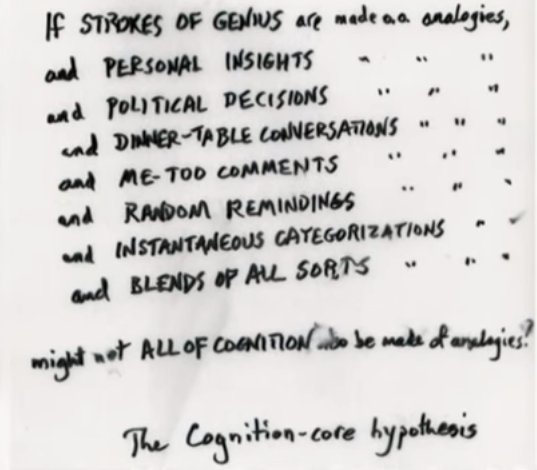 If STROKES OF GENIUS are made a.a. analogies,
and PERSONAL INSIGHTS " " "
and POLITICAL DECISIONS " " "
and DINNER-TABLE CONVERSATIONS " " "
and ME-TOO COMMENTS " " "
and RANDOM REMINDINGS " " "
and INSTANTANEOUS CATEGORIZATIONS " "
and BLENDS OF ALL SORTS " " "
might not ALL OF COGNITION also be made of analogies?
The Cognition-core hypothesis